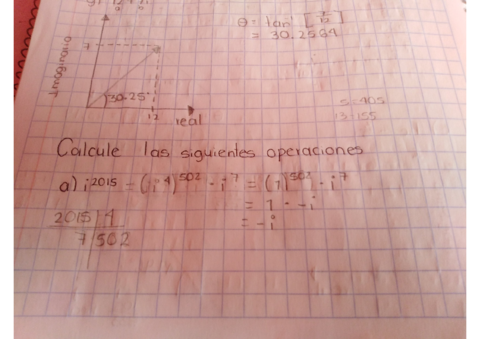 θ = tan⁻¹ [7/12]
= 30.2564
Imaginario
7
30.25°
12
real
Calcule las siguientes operaciones
a) i²⁰¹⁵ = (i⁴)⁵⁰² · i⁷ = (1)⁵⁰² · i⁷
= 1 · -i
= -i
2015 | 4
7 | 502